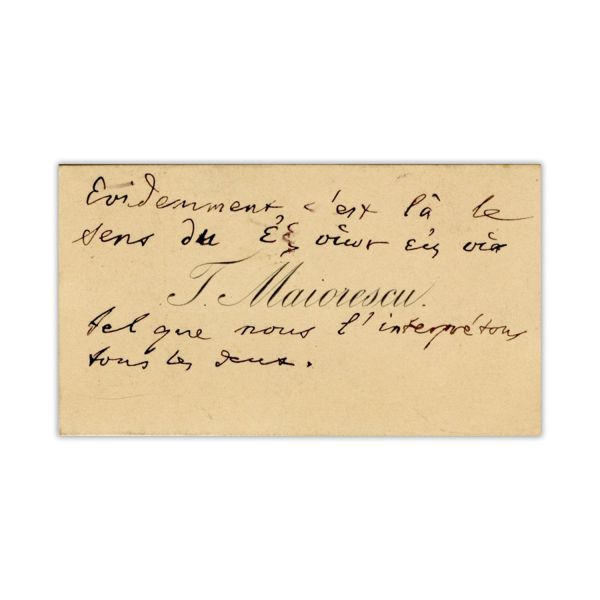 Evidemment c'est là le
sens du ἐξ οἵων εἰς οἷα
T. Maiorescu.
tel que nous l'interprétons
tous les deux.